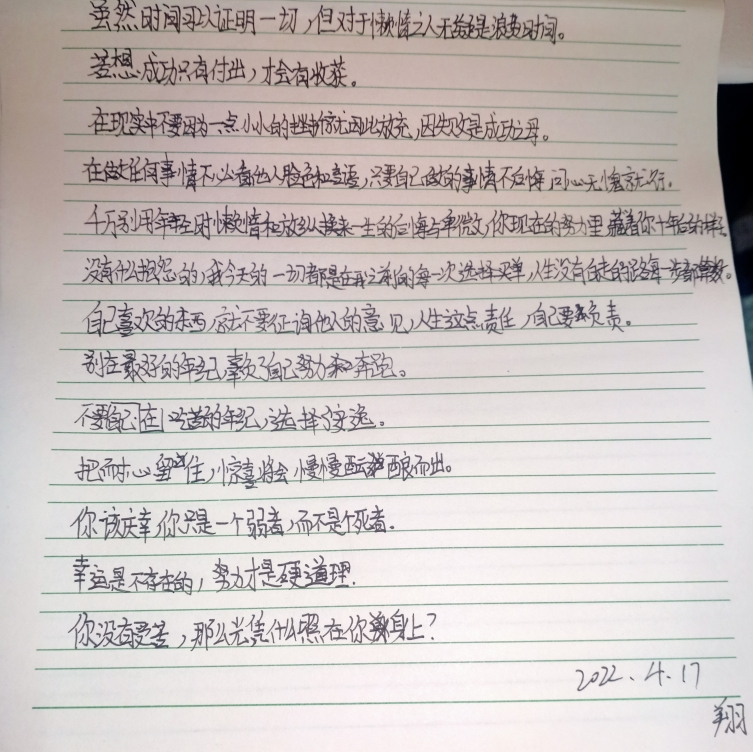 虽然时间可以证明一切,但对于懒惰之人无疑是浪费时间。
若想成功只有付出,才会有收获。
在现实中不要因为一点小小的挫折就因此放充,因失败是成功之母。
在做任何事情不必看他人脸色和言语,只要自己做的事情不后悔 问心无愧就行.
千万别用年轻时懒惰和放纵换来一生的后悔与卑微,你现在的努力里 藏着你十年后的样子
没有什么抱怨的,我今天的一切都是在再之前的每一次选择买单,人生没有白走的路每一步都算数。
自己喜欢的东西,就不要征询他人的意见,人生这点责任,自己要负责。
别在最好的年纪,辜负了自己努力和奔跑。
不要自己在吃苦的年纪,选择了安逸。
把耐心留住,惊喜将会慢慢酝酿而出。
你该庆幸,你只是一个弱者,而不是个死者.
幸运是不存在的,努力才是硬道理.
你没有受苦,那么光凭什么照在你身上?
2022.4.17
翔